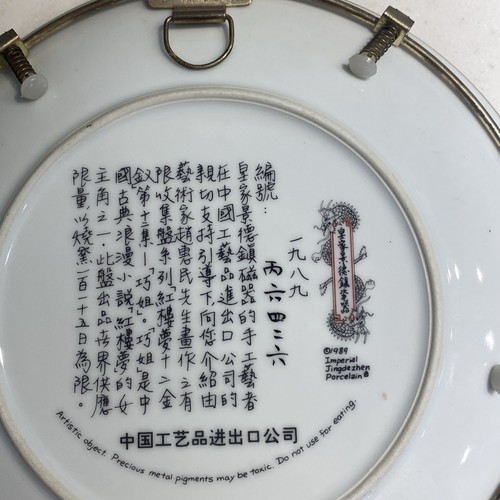 ©1989
Imperial
Jingdezhen
Porcelain®
編號:
一九八九
丙六四三六
皇家景德鎮磁器的手工藝者
在中國工藝品進出口公司的
親切支持引導下向您介紹由
藝術家趙惠民先生畫作之有
限收集盤系列「紅樓夢十二金
釵」第十二集—「巧姐」。「巧姐」是中
國古典浪漫小說「紅樓夢」的女
主角之一.此盤出品世界供應
限量以燒窯一百十五日為限。
中国工艺品进出口公司
Artistic object. Precious metal pigments may be toxic. Do not use for eating.